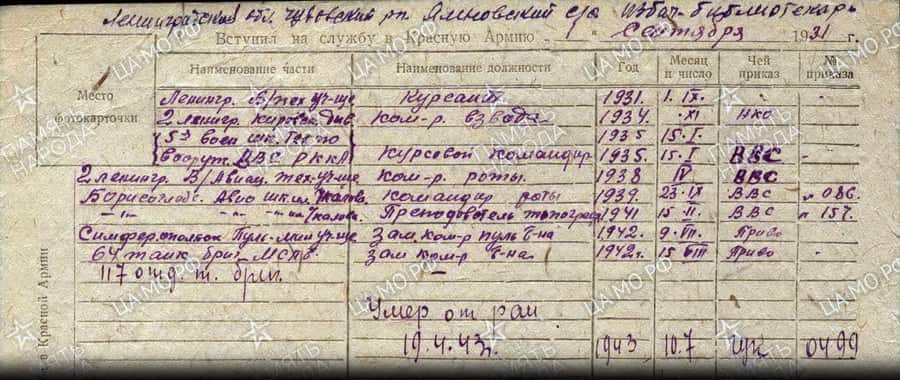 Ленинградская обл. Чудовский рн Ямновский с/с Избач. библиотекарь
Вступил на службу в Красную Армию — " " Сентября 1931 г.
Место фотокарточки
Наименование части Наименование должности Год Месяц и число Чей приказ № приказа
Ленингр. В/тех уч-ще Курсант 1931. 1. IX. -
2 ленингр. Кировск. див Ком-р. взвода 1934. XI НКО -
53 воен шк. 1935 15. I. -
вооруж. ВВС РККА Курсовой командир 1935. 15. I ВВС -
2 ленингр. В/Авиац. тех. уч-ще Ком-р. роты. 1938 IV ВВС
Борисоглебс. Авио шк. им Чкалова Командир роты 1939. 23. IX ВВС 086.
-"- -"- им Чкалова. Преподователь топограф 1941 15 II. ВВС 157.
Симфер. Пул-мин уч-ще Зам. ком-р пуль б-на 1942. 9. VII. Приво -
64 танк. бриг. Зам ком-р б-на. 1942г. 15 VIII Приво -
117 отд. т. бриг. —
Умер от ран
19.4.43г. 1943 10.7 ГУК 0499
о Красной Армии
ЦАМО.РФ
ПАМЯТЬ НАРОДА